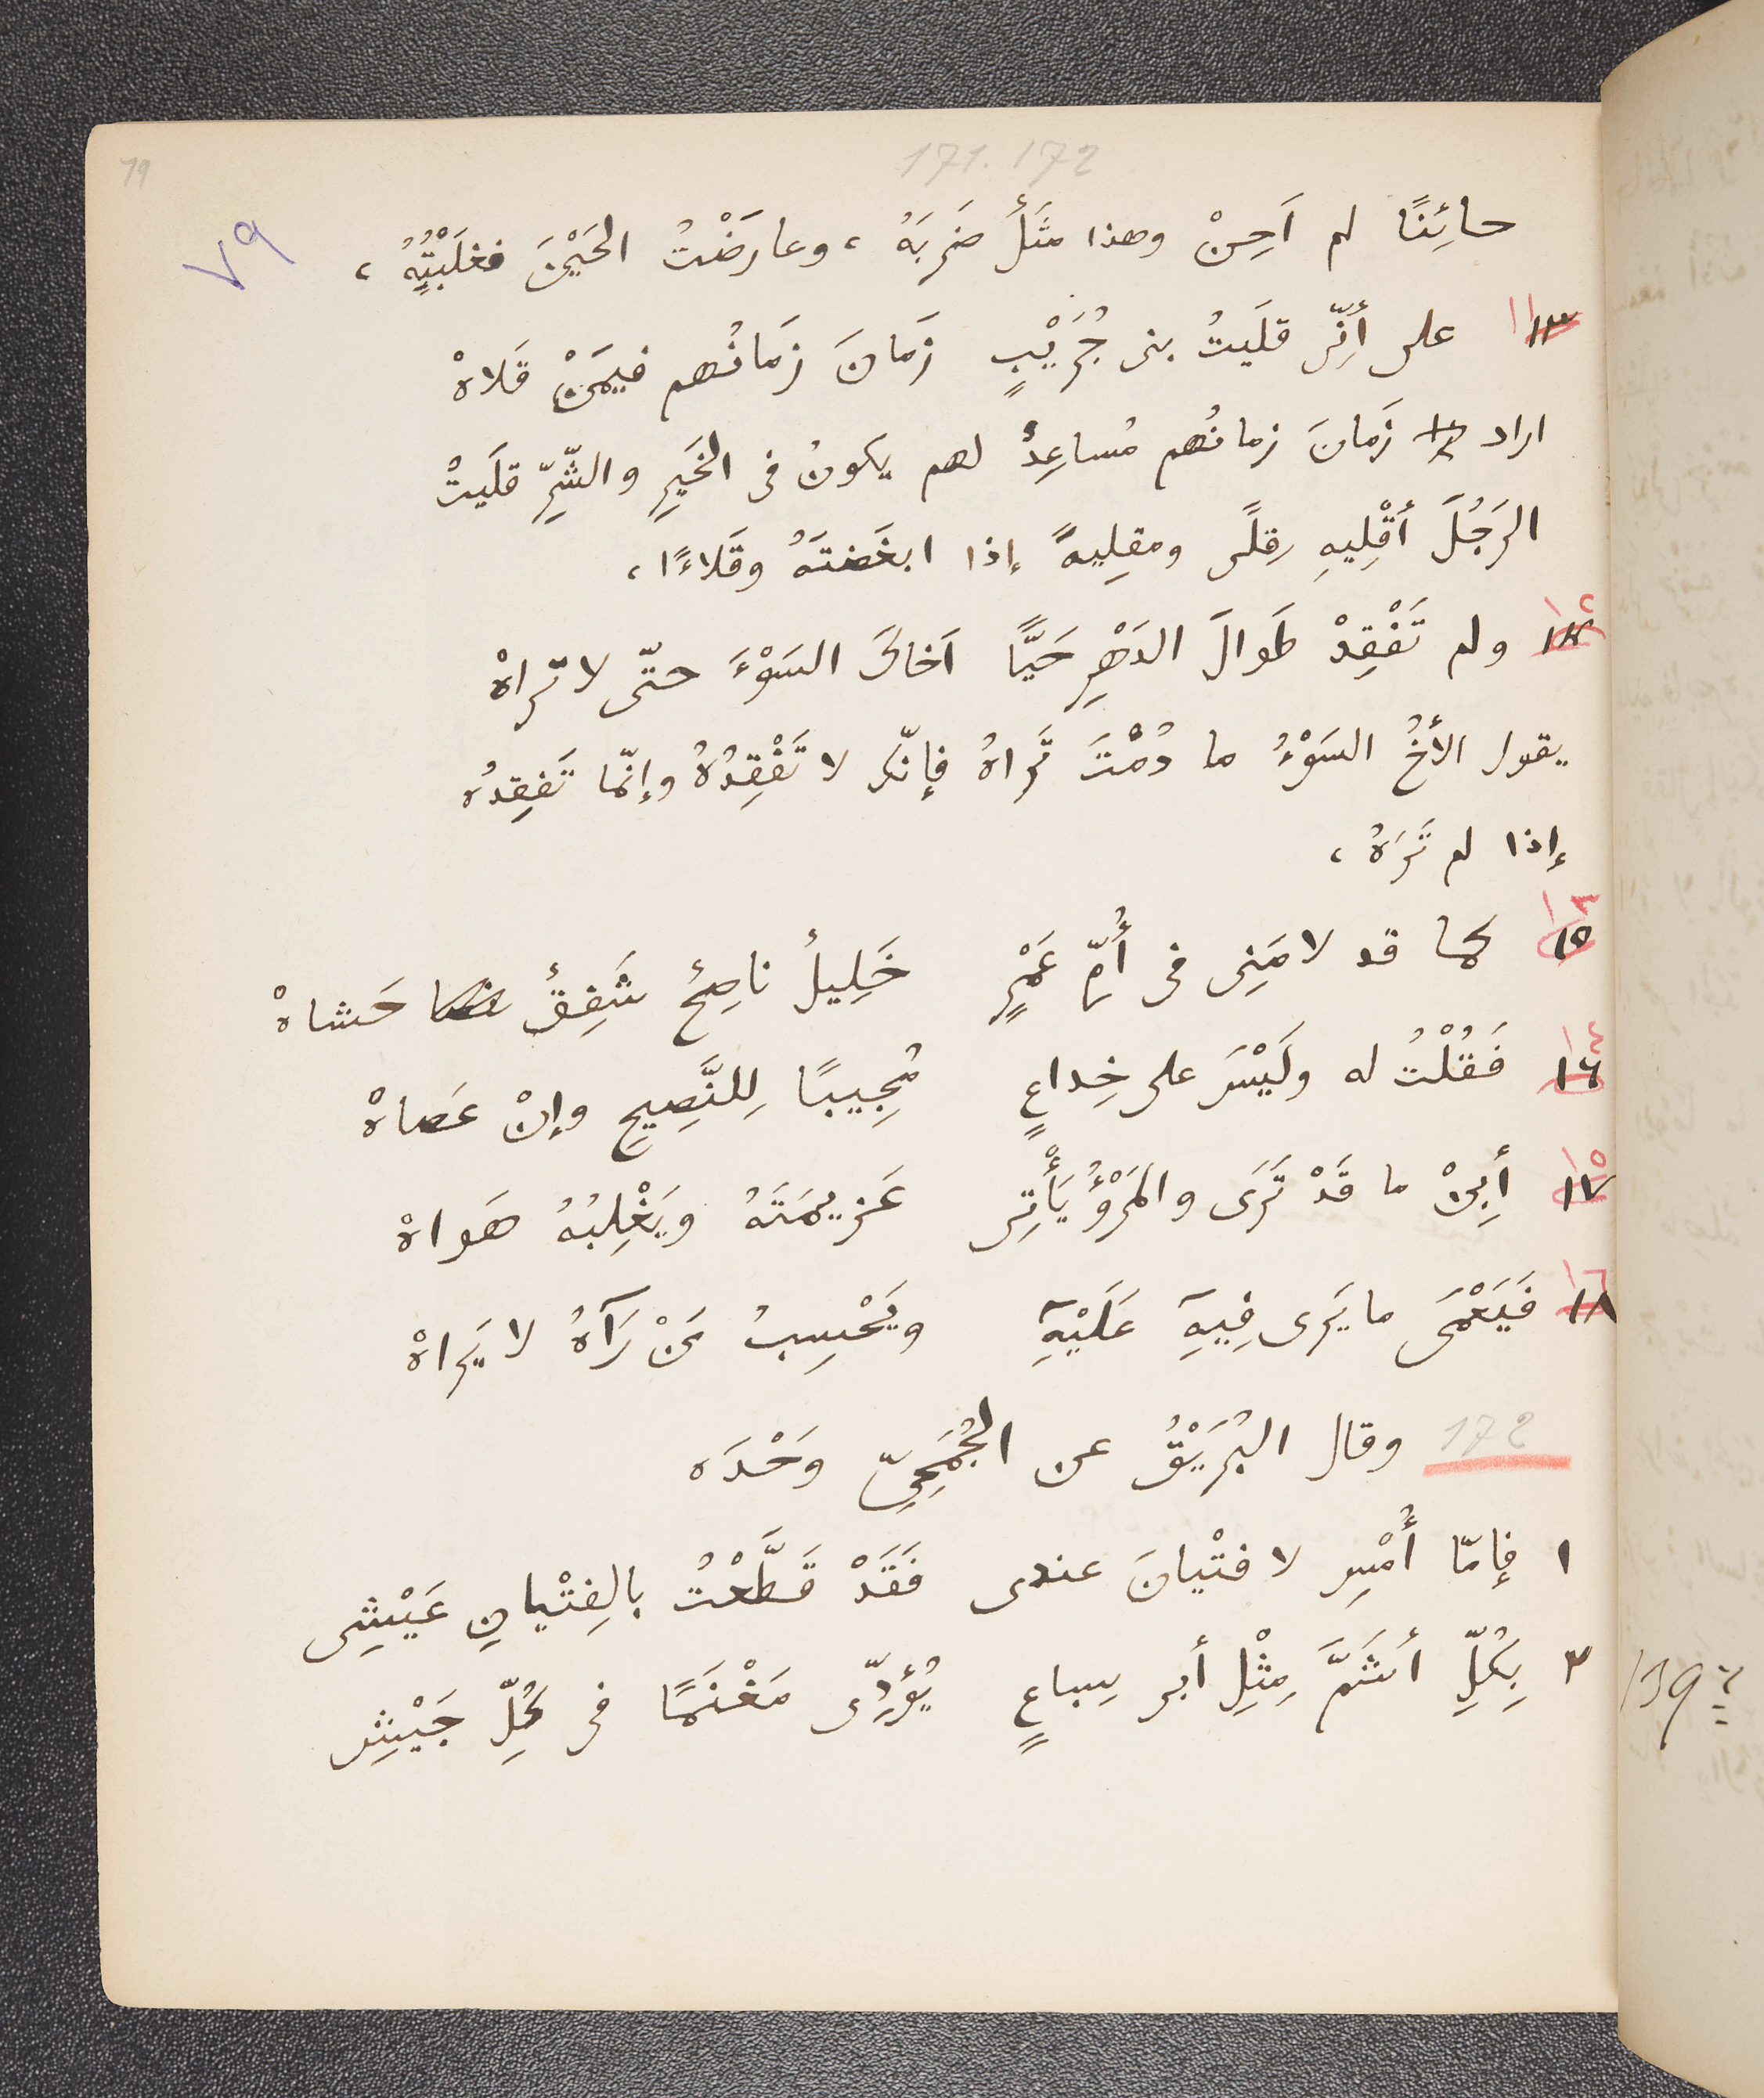 79
171. 172
٧٩
حائِنًا لم اَحِنْ وهذا مَثَلٌ ضَرَبَهُ ، وعارَضْتُ الحَيْنَ فغلَبْتُهُ ،
١١ على أنِّى قلَيتُ بنى جُرَيْبٍ زَمانَ زَمانُهم فيمَنْ قَلاهْ
اراد زَمانَ زمانُهم مُساعِدٌ لهم يكونُ فى الخَيرِ والشّرِّ قلَيتُ
الرَجُلَ أقْلِيهِ قِلًى ومقلِيةً إذا ابغَضتَهُ وقَلاءًا ،
١٢ ولم تَفْقِدْ طَوالَ الدَهْرِ حَيًّا اَخاكَ السَوْءَ حتّى لا تراهْ
يقول الأخُ السَوْءُ ما دُمْتَ تَراهُ فإنّك لا تَفْقِدُهُ وإنّما تَفقِدُه
إذا لم تَرَهُ ،
١٣ كما قد لامَنِى فى أُمِّ عَمْرٍ خَلِيلٌ ناصِحٌ شَفِقٌ حَشاهْ
١٤ فَقُلْتُ له ولَيْسَ على خِداعٍ مُجِيبًا لِلنَّصِيحِ وإنْ عَصاهْ
١٥ أبِنْ ما قَدْ تَرَى والمَرْؤُ يَأْتِى عَزيمَتَهُ ويَغْلِبُهُ هَواهْ
١٦ فَيَعْمَى ما يَرى فِيهِ عَلَيْهِ ويَحْسِبُ مَنْ رَآهُ لا يَراهْ
172 وقال البُرَيْقُ عن الجُمَحِىِّ وَحْدَه
١ فإمّا أُمْسِ لا فتْيانَ عندى فَقَدْ قَطَّعْتُ بالِفِتْيانِ عَيْشِى
٢ بِكُلِّ أشَمَّ مِثْلِ أبى سِباعٍ يُؤَدِّى مَغْنَمًا فى كُلِّ جَيْشِ